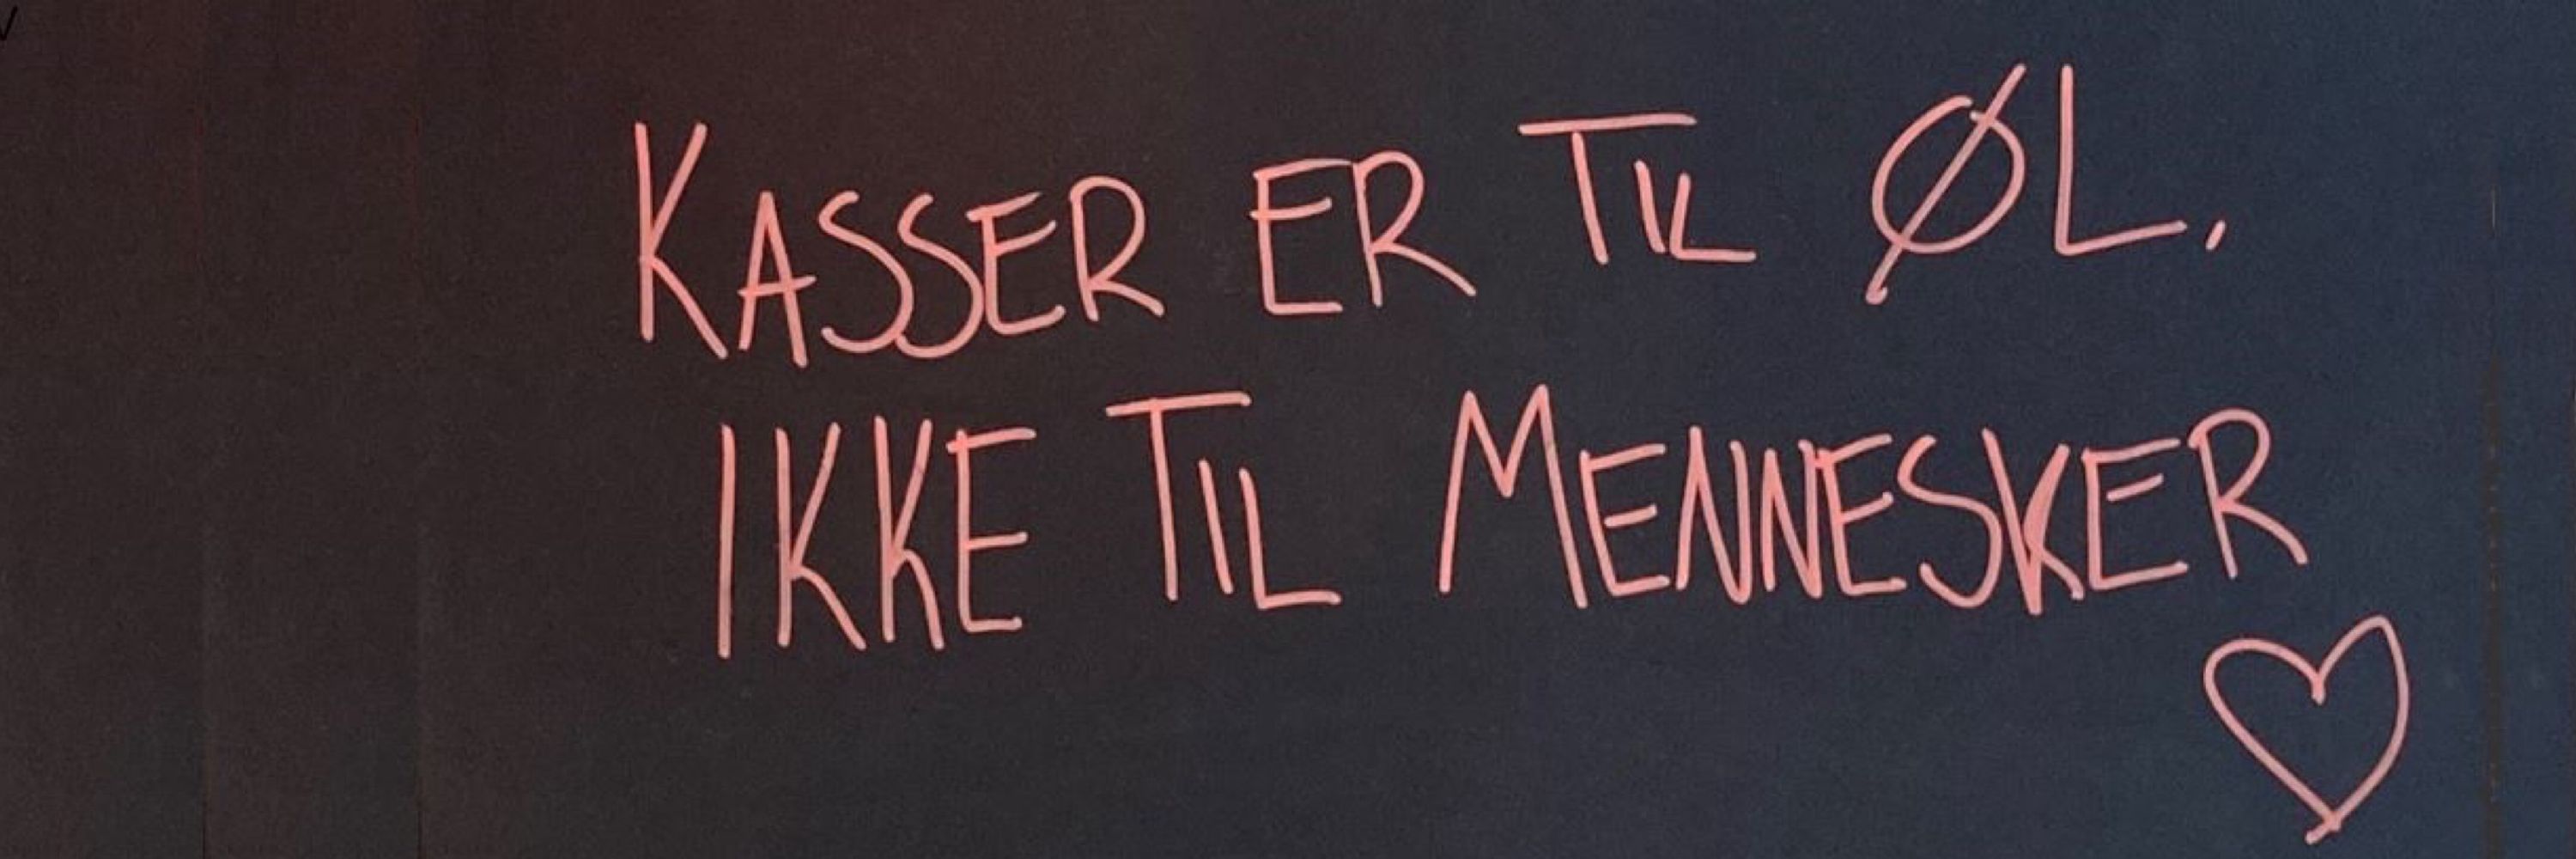 KASSER ER TIL ØL,
IKKE TIL MENNESKER